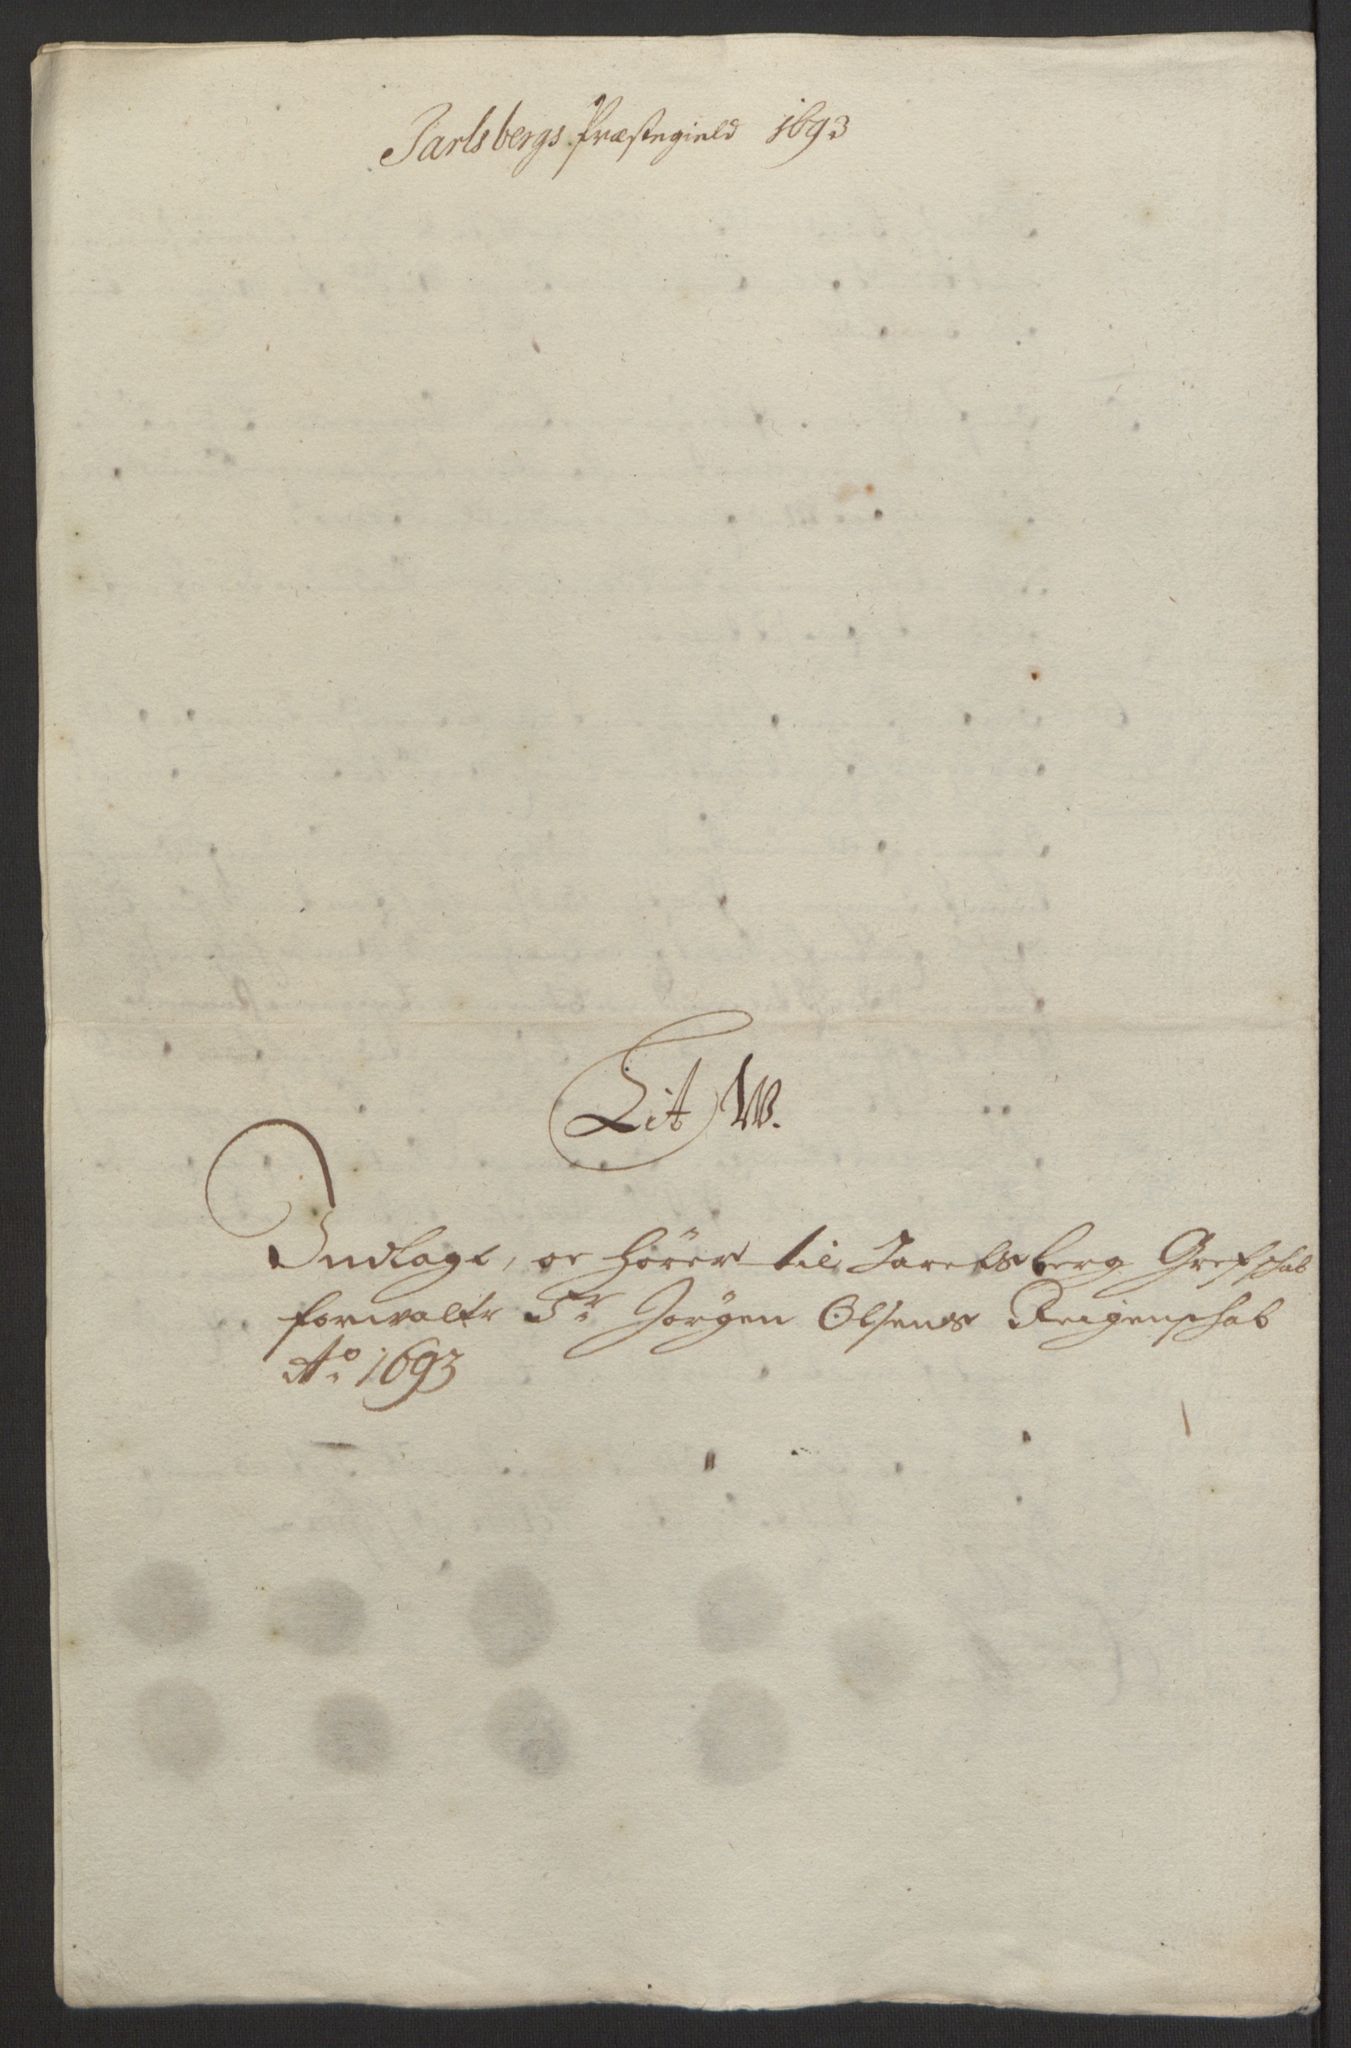 Jarlsbergs Præstegield 1693
Lit W.
Indlagt, oc hörer til Jarelsberg Grefschab
forvaltr Sr Jörgen Olsens Reigenschab
Ao. 1693